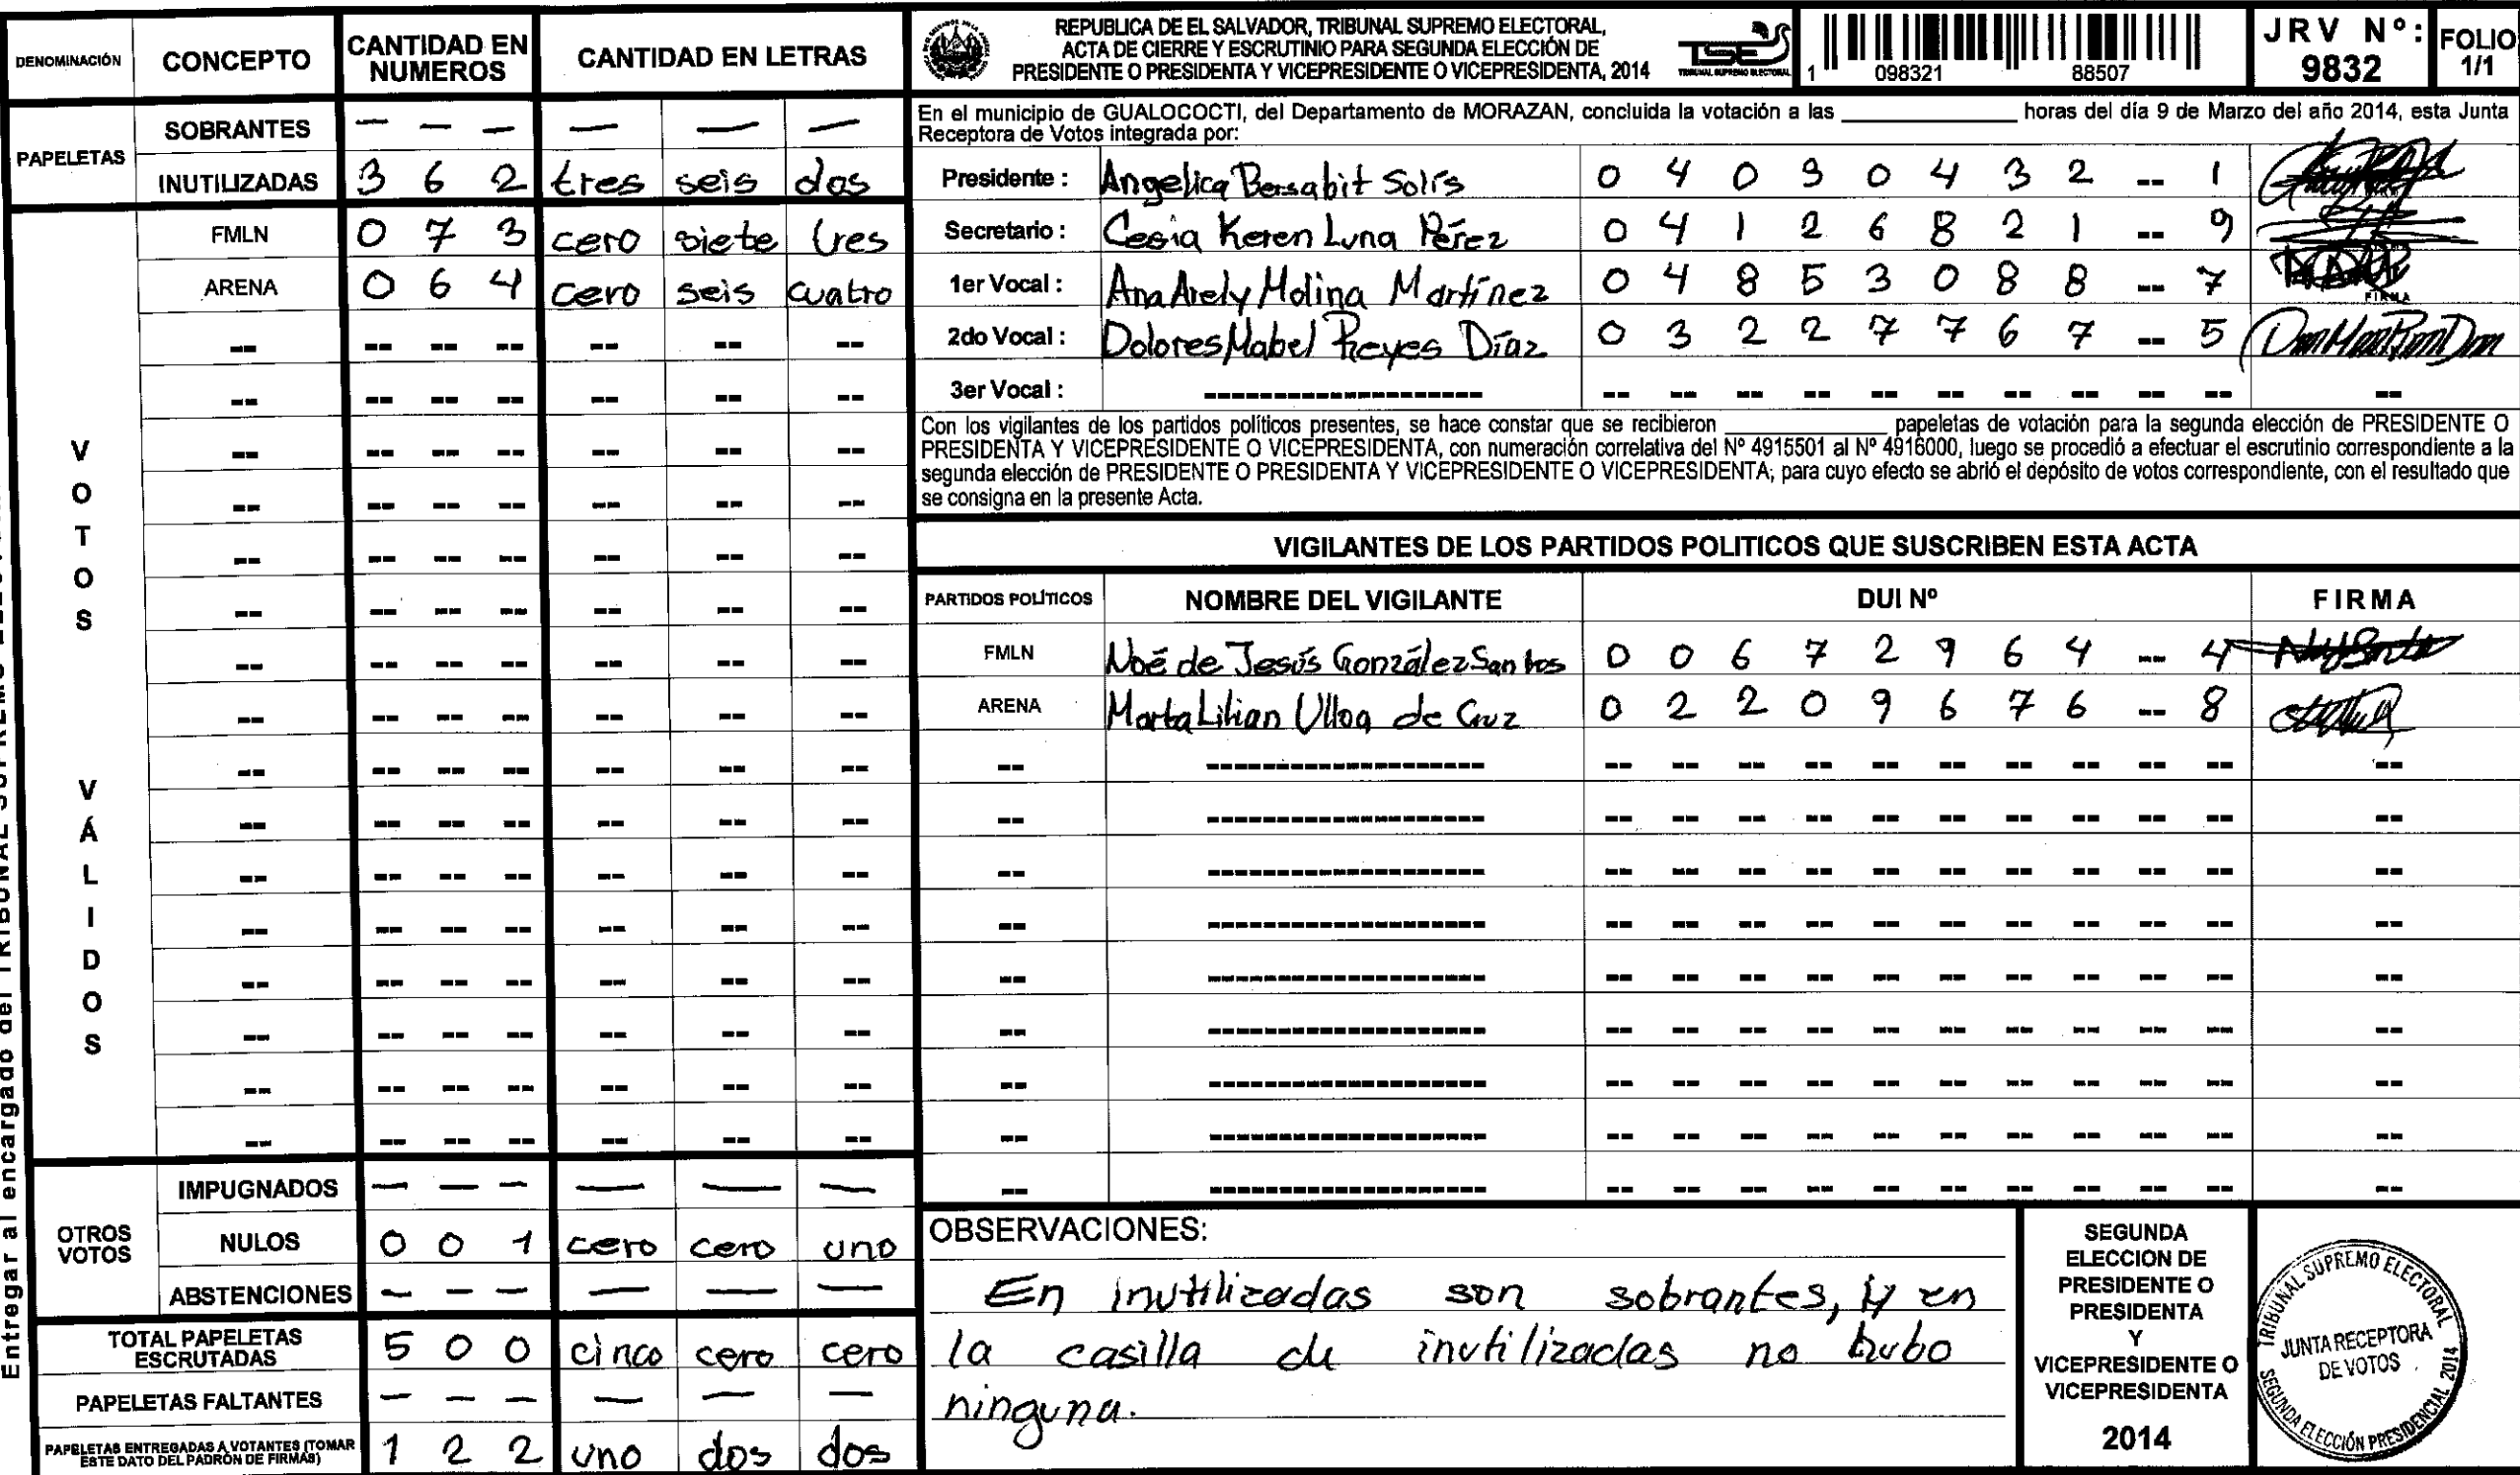 DENOMINACIÓN CONCEPTO CANTIDAD EN NUMEROS CANTIDAD EN LETRAS
PAPELETAS
SOBRANTES — — — — — —
INUTILIZADAS 3 6 2 tres seis dos
VOTOS VÁLIDOS
FMLN 0 7 3 cero siete tres
ARENA 0 6 4 cero seis cuatro
OTROS VOTOS
IMPUGNADOS — — — — — —
NULOS 0 0 1 cero cero uno
ABSTENCIONES — — — — — —
TOTAL PAPELETAS ESCRUTADAS 5 0 0 cinco cero cero
PAPELETAS FALTANTES — — — — — —
PAPELETAS ENTREGADAS A VOTANTES (TOMAR ESTE DATO DEL PADRÓN DE FIRMAS) 1 2 2 uno dos dos
Entregar al encargado del TRIBUNAL SUPREMO
REPUBLICA DE EL SALVADOR, TRIBUNAL SUPREMO ELECTORAL,
ACTA DE CIERRE Y ESCRUTINIO PARA SEGUNDA ELECCIÓN DE
PRESIDENTE O PRESIDENTA Y VICEPRESIDENTE O VICEPRESIDENTA, 2014
TSE
TRIBUNAL SUPREMO ELECTORAL
1 098321 88507
JRV Nº: 9832
FOLIO 1/1
En el municipio de GUALOCOCTI, del Departamento de MORAZAN, concluida la votación a las ____________ horas del día 9 de Marzo del año 2014, esta Junta
Receptora de Votos integrada por:
Presidente : Angelica Bersabit Solís 0 4 0 3 0 4 3 2 -- 1
Secretario : Cesia Keren Luna Pérez 0 4 1 2 6 8 2 1 -- 9
1er Vocal : Ana Arely Molina Martínez 0 4 8 5 3 0 8 8 -- 7
FIRMA
2do Vocal : Dolores Mabel Reyes Díaz 0 3 2 2 7 7 6 7 -- 5
3er Vocal : -- -- -- -- -- -- -- -- -- --
Con los vigilantes de los partidos políticos presentes, se hace constar que se recibieron ____________ papeletas de votación para la segunda elección de PRESIDENTE O
PRESIDENTA Y VICEPRESIDENTE O VICEPRESIDENTA, con numeración correlativa del Nº 4915501 al Nº 4916000, luego se procedió a efectuar el escrutinio correspondiente a la
segunda elección de PRESIDENTE O PRESIDENTA Y VICEPRESIDENTE O VICEPRESIDENTA; para cuyo efecto se abrió el depósito de votos correspondiente, con el resultado que
se consigna en la presente Acta.
VIGILANTES DE LOS PARTIDOS POLITICOS QUE SUSCRIBEN ESTA ACTA
PARTIDOS POLÍTICOS NOMBRE DEL VIGILANTE DUI Nº FIRMA
FMLN Noé de Jesús González Santos 0 0 6 7 2 9 6 4 -- 4
ARENA Marta Lilian Ulloa de Cruz 0 2 2 0 9 6 7 6 -- 8
OBSERVACIONES:
En inutilizadas son sobrantes, y en
la casilla de inutilizadas no hubo
ninguna.
SEGUNDA
ELECCION DE
PRESIDENTE O
PRESIDENTA
Y
VICEPRESIDENTE O
VICEPRESIDENTA
2014
TRIBUNAL SUPREMO ELECTORAL
JUNTA RECEPTORA
DE VOTOS
SEGUNDA ELECCIÓN PRESIDENCIAL 2014